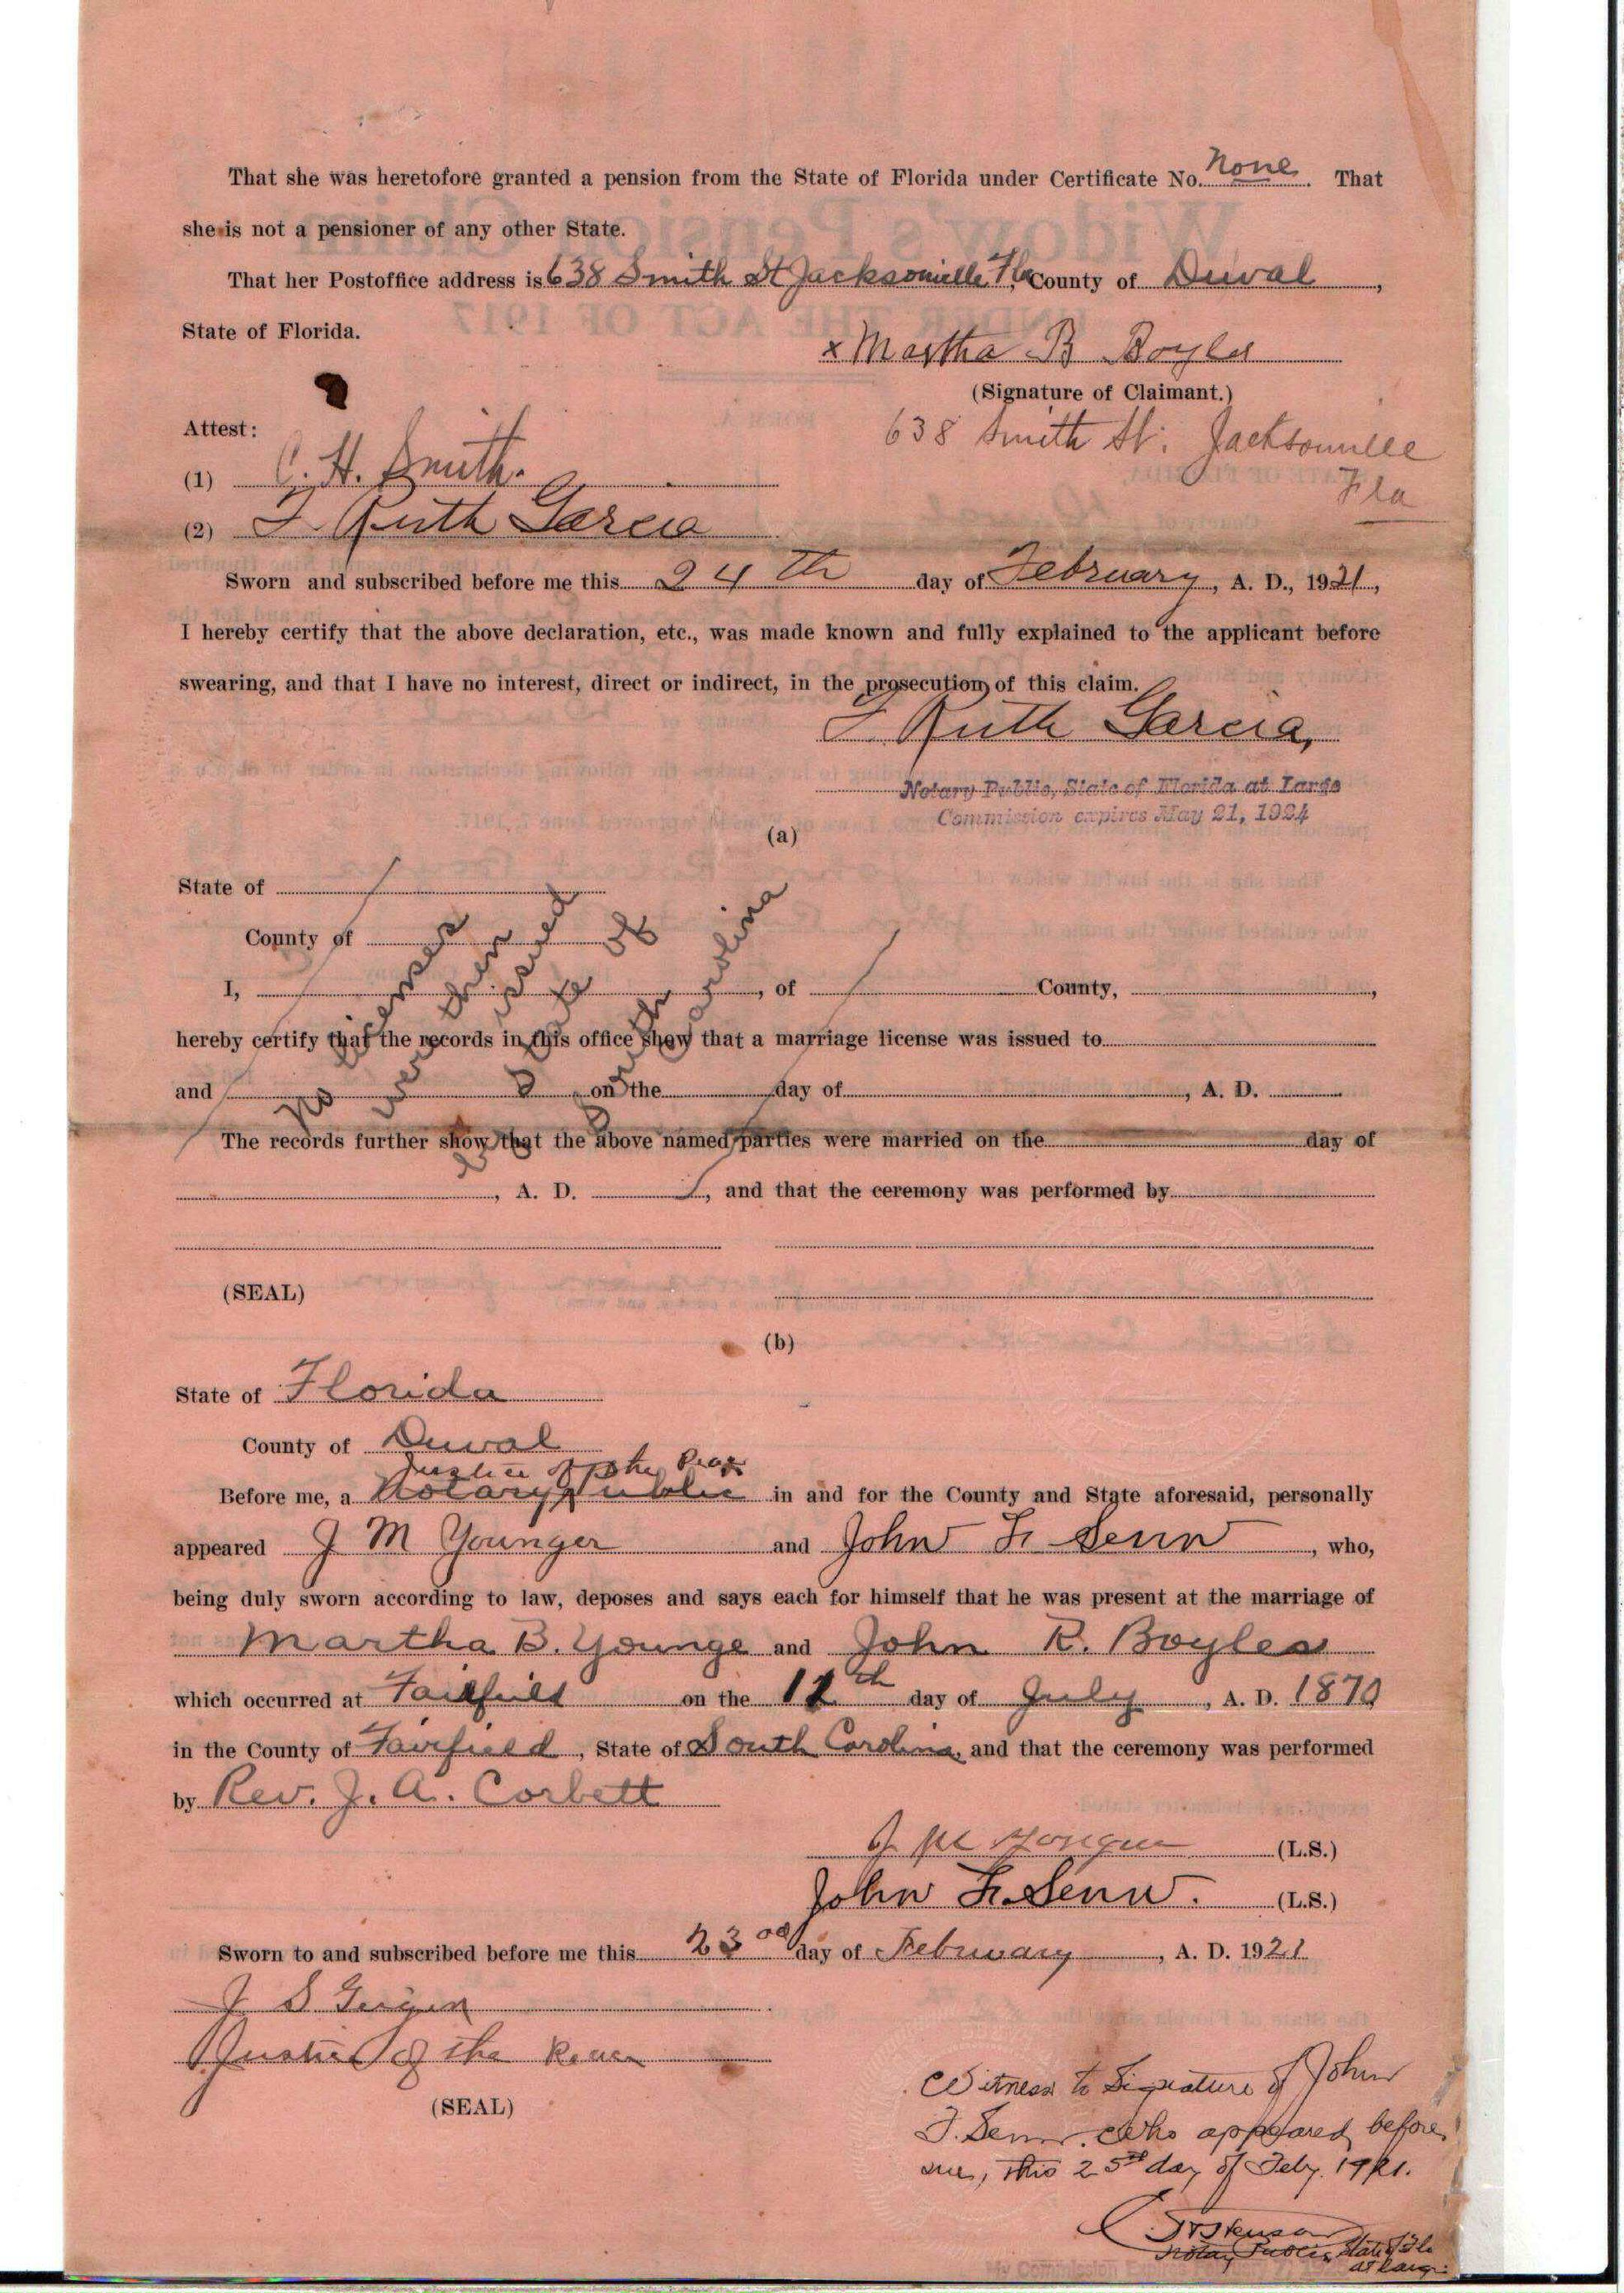 That she was heretofore granted a pension from the State of Florida under Certificate No. None. That
she is not a pensioner of any other State.
That her Postoffice address is 638 Smith St Jacksonville Fla, County of Duval,
State of Florida.
x Martha B Boyles
(Signature of Claimant.)
638 Smith St. Jacksonville
Fla
Attest:
(1) C. H. Smith.
(2) F Ruth Garcia
Sworn and subscribed before me this 24th day of February, A. D., 1921,
I hereby certify that the above declaration, etc., was made known and fully explained to the applicant before
swearing, and that I have no interest, direct or indirect, in the prosecution of this claim.
F Ruth Garcia,
Notary Public, State of Florida at Large
Commission expires May 21, 1924
(a)
State of
County of
I, , of County, ,
hereby certify that the records in this office show that a marriage license was issued to
and on the day of , A. D.
The records further show that the above named parties were married on the day of
, A. D. , and that the ceremony was performed by
no licenses
were then
issued
in State of
South Carolina
(SEAL)
(b)
State of Florida
County of Duval
Justice of the Peace
Before me, a Notary Public in and for the County and State aforesaid, personally
appeared J M Younger and John F. Senn, who,
being duly sworn according to law, deposes and says each for himself that he was present at the marriage of
Martha B. Younge and John R. Boyles
which occurred at Fairfield on the 12th day of July, A. D. 1870
in the County of Fairfield, State of South Carolina, and that the ceremony was performed
by Rev. J. A. Corbett
J M (L.S.)
John F. Senn. (L.S.)
Sworn to and subscribed before me this 23rd day of February, A. D. 1921
J S
Justice of the Peace
(SEAL)
Witness to Signature of John
F. Senn. who appeared before
me, this 25th day of Feby. 1921.
Notary Public, State of Fla
at large